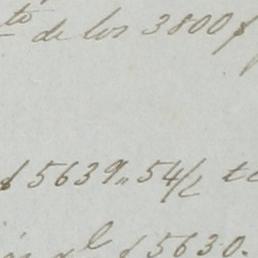 to de los 3800 f
f 5639,, 54/2 te
f 5630.